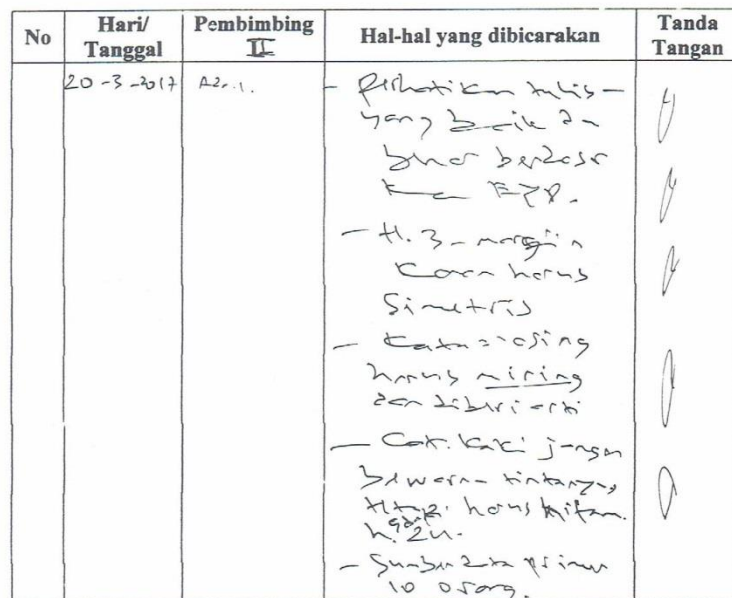 No
Hari/
Tanggal
Pembimbing
II
Hal-hal yang dibicarakan
Tanda
Tangan
20-3-2017
- Perhatikan tulis-
yang baik dan
benar berdasar
kan EYD.
- H. 3 - margin
harus
Simetris
- Kata asing
harus miring
dan diberi arti
- Cat. kaki jangan
bewarna tintanya
tetapi harus hitam.
h. 24.
- Sumber data primer
10 orang.